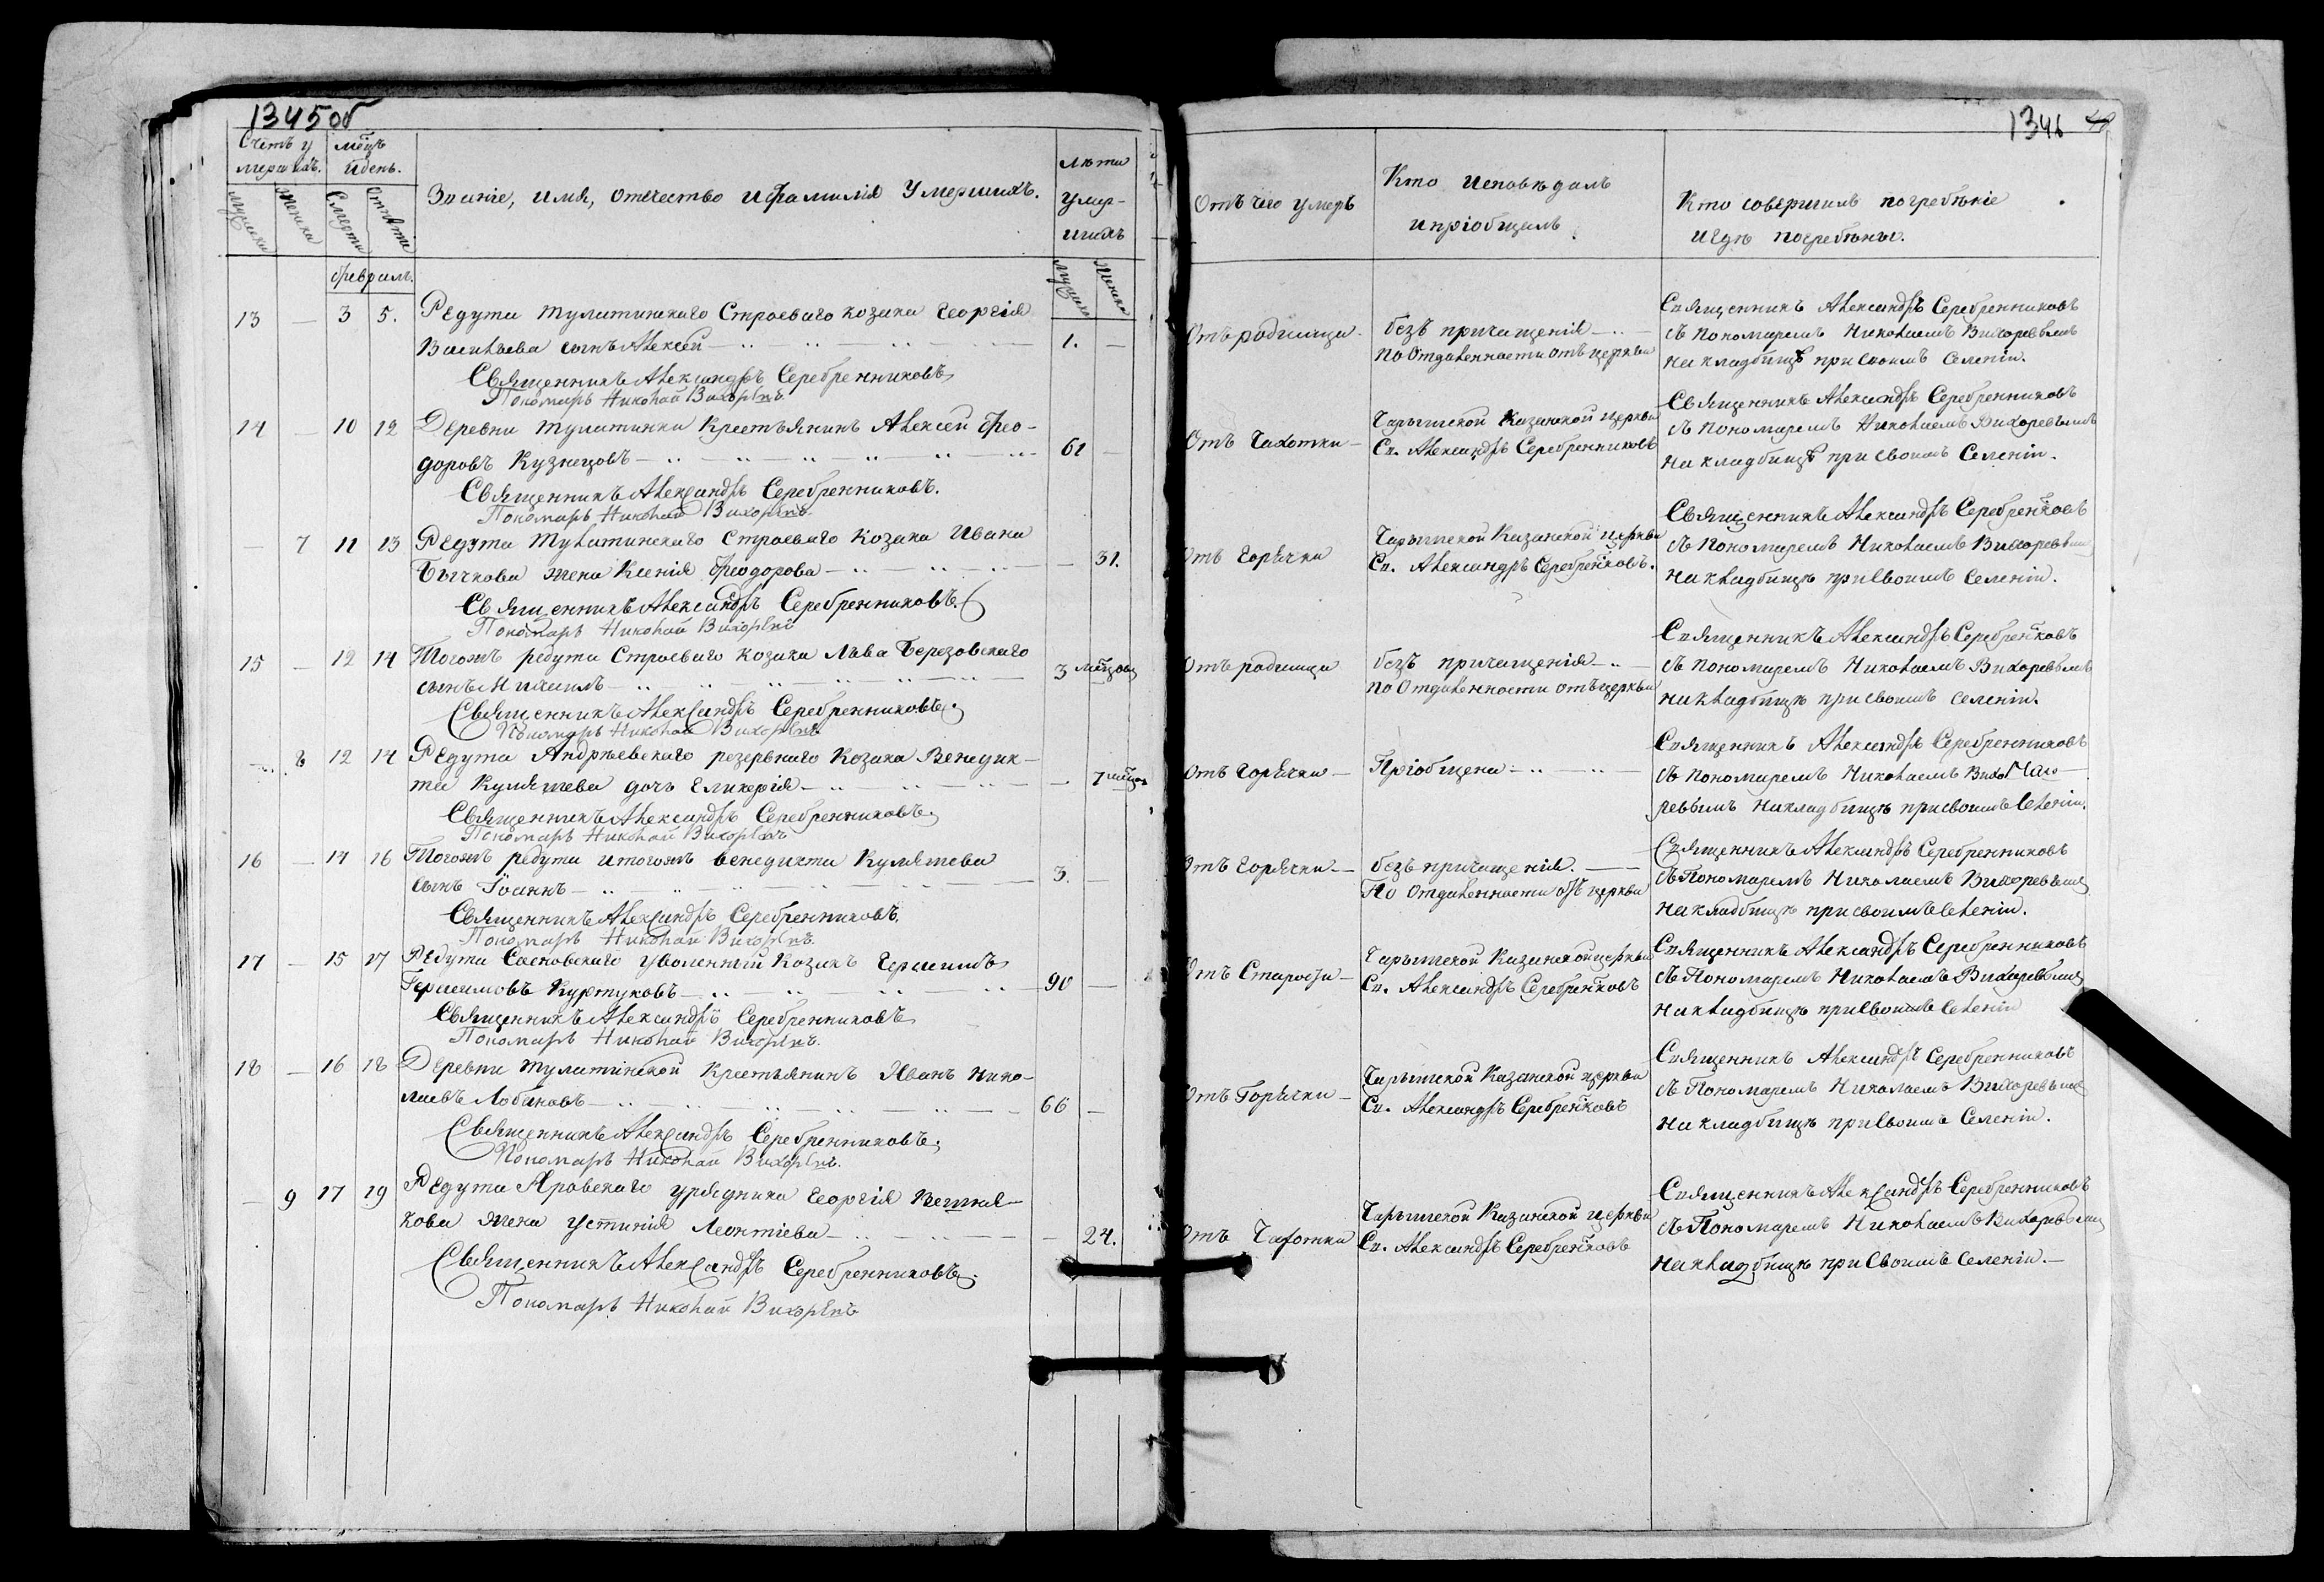 1345 об
Счетъ у
мершихъ.
мѣцъ
и день.
мужска
женска
Смерти
Отпѣтія
Званіе, имя, отечество и фамилія Умершихъ.
лѣта
умер-
шихъ
мужска
женска
февраль.
13 — 3 5. Редута Тулатинскаго Строеваго козака Георгія
Васильева сынъ Алексѣй — 1. —
Священникъ Александръ Серебренниковъ
Пономарь Николай Вихоревъ
14 — 10 12 Деревни Тулатинки Крестьянинъ Алексей Фео-
доровъ Кузнецовъ — 61 —
Священникъ Александръ Серебренниковъ.
Пономарь Николай Вихоревъ
— 7 11 13 Редута Тулатинскаго Строеваго Козака Ивана
Бычкова жена Ксенія Феодорова — 31.
Священникъ Александръ Серебренниковъ.
Пономарь Николай Вихоревъ
15 — 12 14 Тогожъ редута Строеваго козака Льва Березовскаго
сынъ Михаилъ — 3 мѣцовъ
Священникъ Александръ Серебренниковъ.
Пономарь Николай Вихоревъ
— 8 12 14 Редута Андреевскаго резервнаго Козака Венедик-
та Куляшева дочь Гликерія — 7 мѣцов
Священникъ Александръ Серебренниковъ
Пономарь Николай Вихоревъ
16 — 14 16 Тогожъ редута и тогожъ венедикта Куляшева
сынъ Іоаннъ — 3. —
Священникъ Александръ Серебренниковъ.
Пономарь Николай Вихоревъ.
17 — 15 17 Редута Сосновскаго уволенный Козакъ Герасимъ
Герасимовъ Куртуковъ — 90 —
Священникъ Александръ Серебренниковъ
Пономарь Николай Вихоревъ.
18 — 16 18 Деревни Тулатинской Крестьянинъ Иванъ Нико-
лаевъ Лобановъ — 66 —
Священникъ Александръ Серебренниковъ.
Пономарь Николай Вихоревъ.
— 9 17 19 Редута Яровскаго урядника Георгія Вешня-
кова жена Устинія Леонтіева — 24.
Священникъ Александръ Серебренниковъ.
Пономарь Николай Вихоревъ
1346
Отъ чего умеръ
Кто исповѣдалъ
и пріобщалъ
Кто совершилъ погребѣніе
и гдѣ погребѣны.
Отъ родимца.
безъ причащенія —
по Отдаленности отъ церкви
Священникъ Александръ Серебренниковъ
съ пономаремъ Николаемъ Вихоревымъ
на кладбищѣ при своимъ Селеніи.
Отъ Чахотки —
Чарышской Казанской церкви
Св. Александръ Серебренниковъ
Священникъ Александръ Серебренниковъ
съ пономаремъ Николаемъ Вихоревымъ
на кладбищѣ при своимъ Селеніи.
Отъ Горячки
Чарышской Казанской церкви
Св. Александръ Серебренковъ.
Священникъ Александръ Серебренковъ
съ Пономаремъ Николаемъ Вихоревым
на кладбищѣ при Своимъ Селеніи.
Отъ родимца
безъ причащенія —
по Отдаленности отъ церкви
Священникъ Александръ Серебренковъ
съ пономаремъ Николаемъ Вихоревымъ
на кладбищѣ при своимъ селеніи.
Отъ горячки —
Пріобщена —
Священникъ Александръ Серебренниковъ
съ пономаремъ Николаемъ Вихо
ревымъ на кладбищѣ при своимъ Селеніи.
Отъ горячки —
безъ причащенія. —
По Отдаленности отъ церкви
Священникъ Александръ Серебренниковъ
съ Пономаремъ Николаемъ Вихоревымъ
на кладбищѣ при своимъ Селеніи.
Отъ Старости —
Чарышской Казанской церкви
Св. Александръ Серебренковъ
Священникъ Александръ Серебренниковъ
съ Пономаремъ Николаемъ Вихоревымъ
на кладбищѣ при Своимъ Селеніи
Отъ Горячки —
Чарышской Казанской церкви
Св. Александръ Серебренковъ
Священникъ Александръ Серебренниковъ
съ Пономаремъ Николаемъ Вихоревымъ
на кладбищѣ при Своимъ Селеніи.
Отъ Чахотки
Чарышской Казанской церкви
Св. Александръ Серебренковъ
Священникъ Александръ Серебренниковъ
съ Пономаремъ Николаемъ Вихоревымъ
на кладбищѣ при Своимъ Селеніи. —